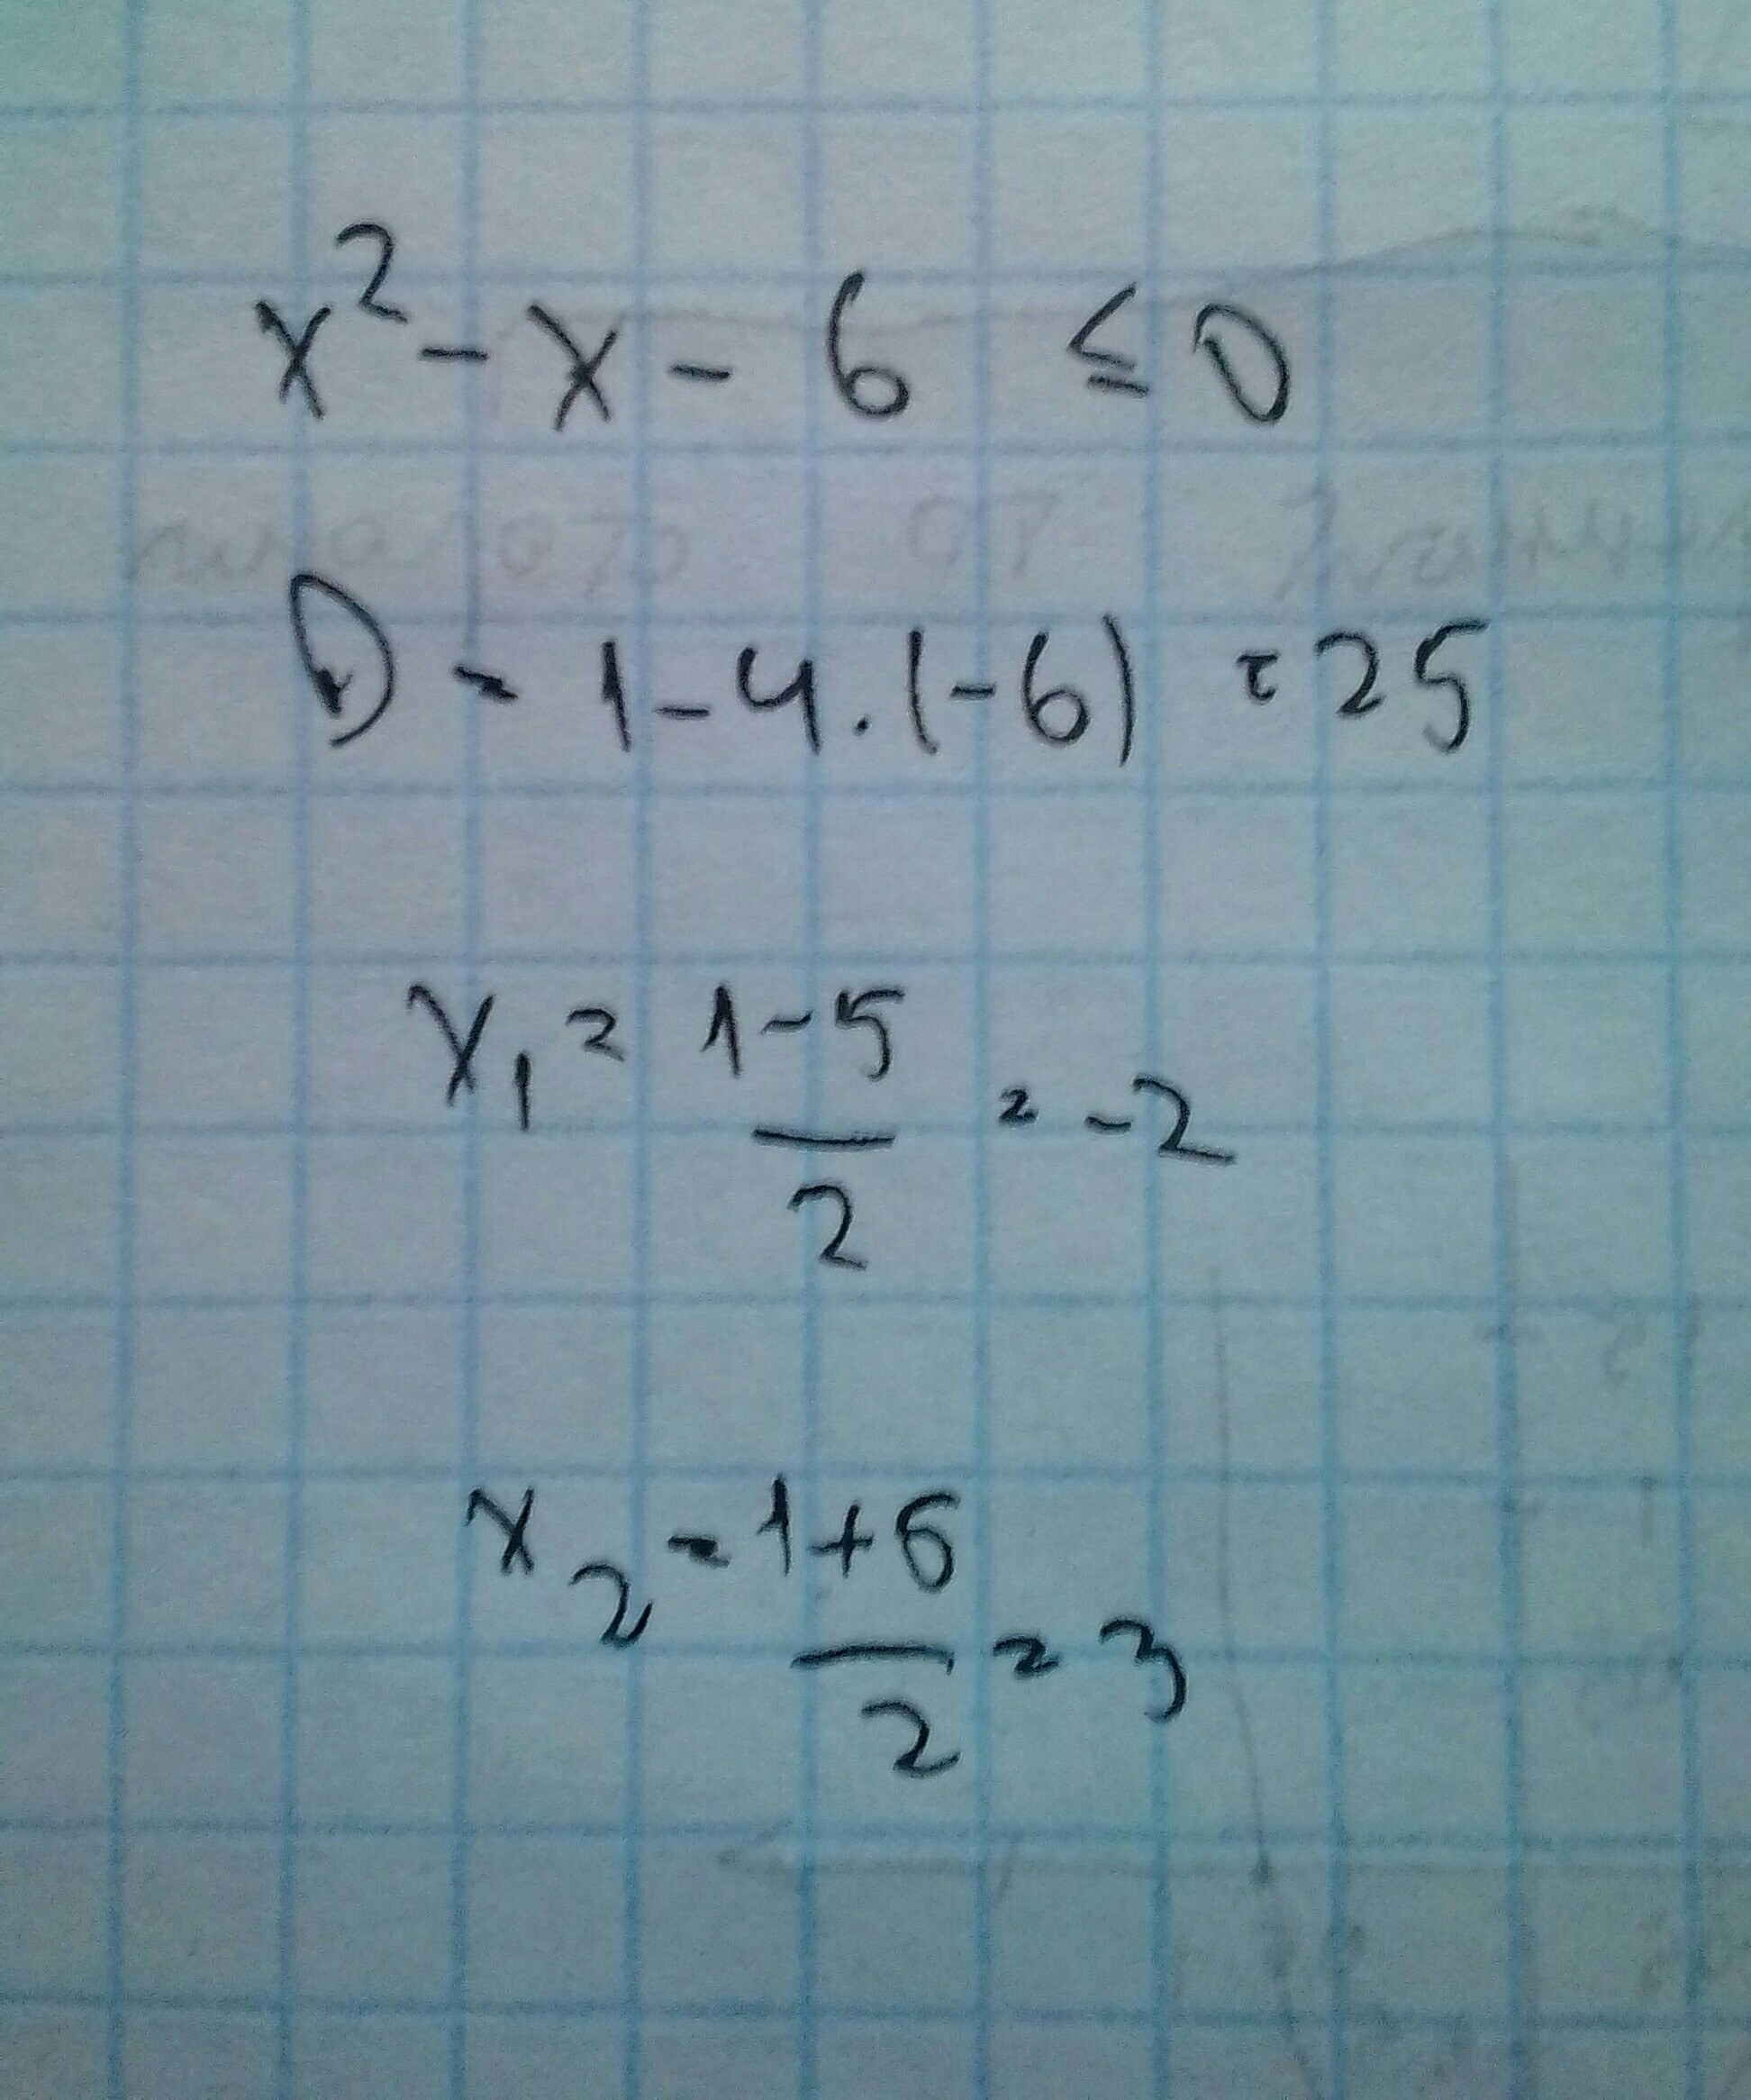 x² - x - 6 ≤ 0
D = 1 - 4 . (-6) = 25
x₁ = 1 - 5 / 2 = -2
x₂ = 1 + 5 / 2 = 3